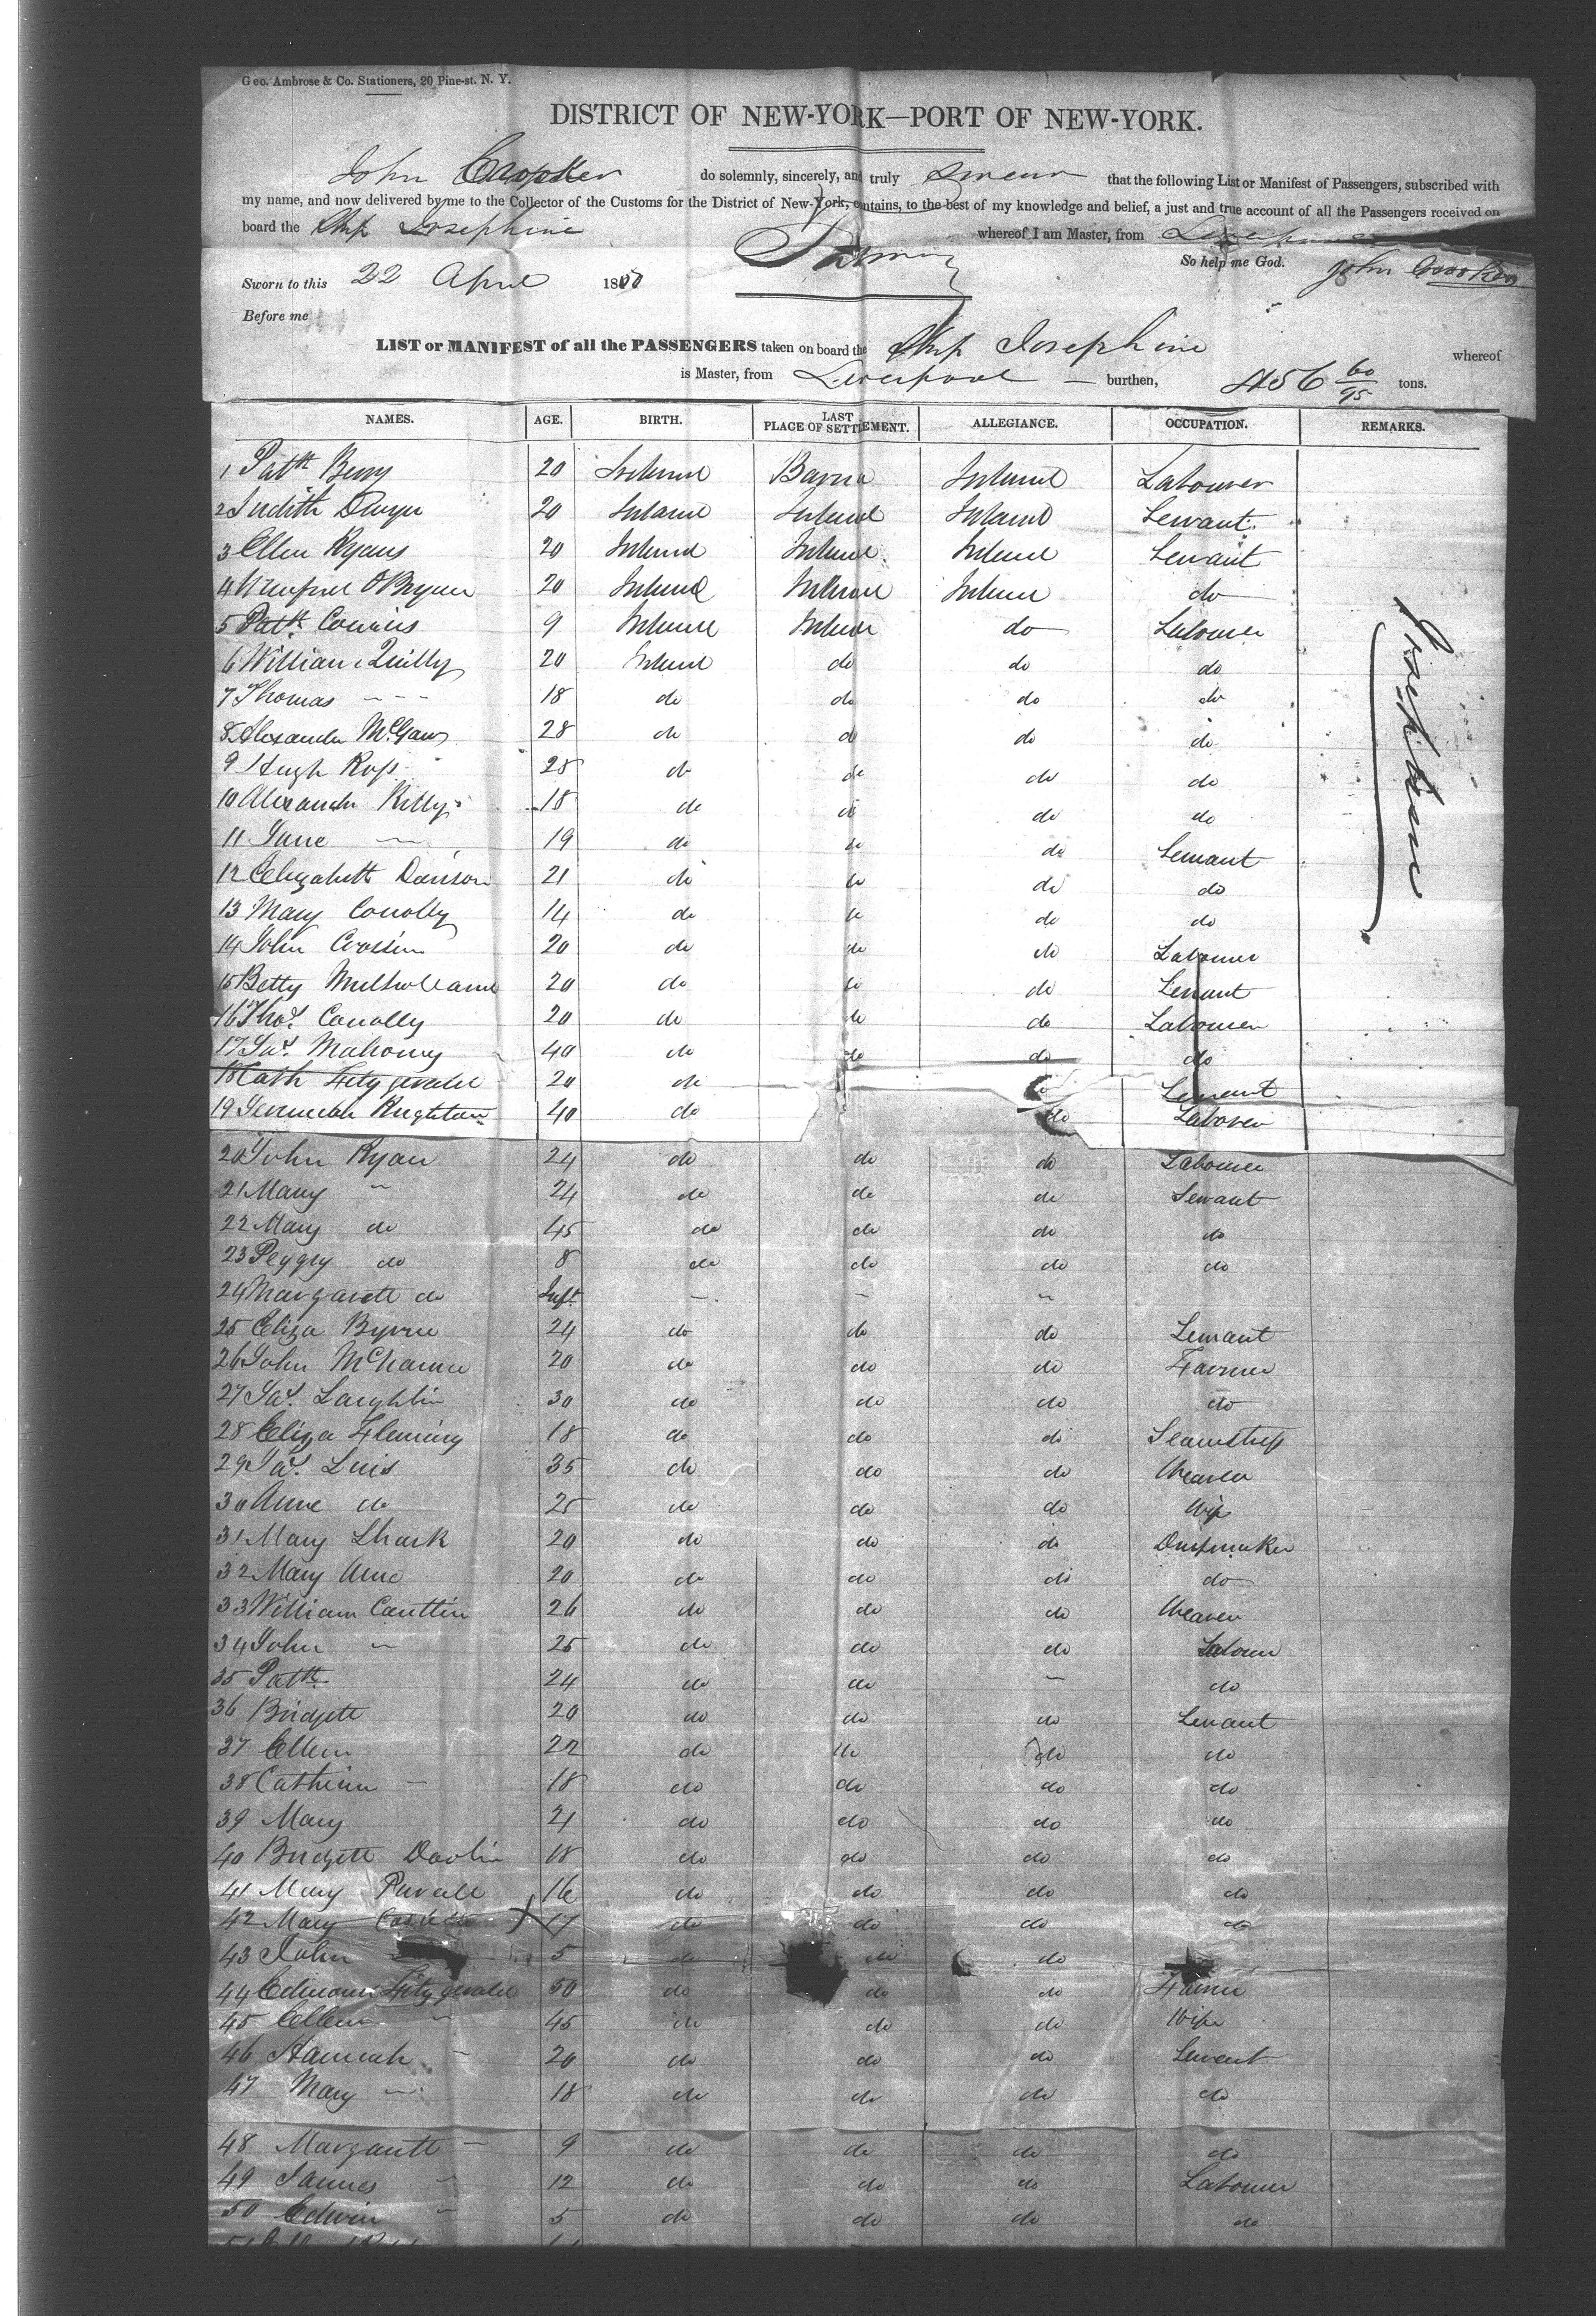 Geo. Ambrose & Co. Stationers, 20 Pine-st. N. Y.
DISTRICT OF NEW-YORK—PORT OF NEW-YORK.
John do solemnly, sincerely, and truly swear that the following List or Manifest of Passengers, subscribed with
my name, and now delivered by me to the Collector of the Customs for the District of New-York, contains, to the best of my knowledge and belief, a just and true account of all the Passengers received on
board the Ship Josephine whereof I am Master, from Liverpool
So help me God. John
Sworn to this 22 April 1850
Before me
LIST or MANIFEST of all the PASSENGERS taken on board the Ship Josephine whereof
is Master, from Liverpool — burthen, 456 60/95 tons.
NAMES. AGE. BIRTH. LAST PLACE OF SETTLEMENT. ALLEGIANCE. OCCUPATION. REMARKS.
1 Patk Berry 20 Ireland Ireland Labourer
2 Judith Dwyer 20 Ireland Ireland Ireland Servant
3 Ellen Ryans 20 Ireland Ireland Ireland Servant
4 O'Bryan 20 Ireland Ireland Ireland do
5 Patk 9 Ireland Ireland do Labourer
6 William 20 Ireland do do do
7 Thomas - - - 18 do do do do
8 Alexander McGaw 28 do do do do
9 Hugh Ross 28 do do do do
10 Alexander Kelly 18 do do do do
11 Jane — 19 do do do Servant
12 Elizabeth Davison 21 do do do do
13 Mary Conolly 14 do do do do
14 John 20 do do do Labourer
15 Betty Mulholland 20 do do do Servant
16 Thos. Conolly 20 do do do Labourer
17 Jas. Mahoney 40 do do do do
18 Cath Fitzgerald 20 do Servant
19 Jeremiah 40 do do Laborer
20 John Ryan 24 do do do Labourer
21 Mary " 24 do do do Servant
22 Mary do 45 do do do do
23 Peggy do 8 do do do do
24 Margarett do Inft — — "
25 Eliza Byrne 24 do do do Servant
26 John 20 do do do Farmer
27 Jas. Laughlin 30 do do do do
28 Eliza Fleming 18 do do do Seamstress
29 Jas. Luis 35 do do do Weaver
30 Anne do 25 do do do Wife
31 Mary Shark 20 do do do Dressmaker
32 Mary Anne 20 do do do do
33 William 26 do do do Weaver
34 John " 25 do do do Labourer
35 Patk 24 do do — do
36 Bridgett 20 do do do Servant
37 Ellen 22 do do do do
38 Catherine — 18 do do do do
39 Mary 21 do do do do
40 Bridgett 18 do do do do
41 Mary 16 do do do do
42 Mary do do do do
43 John 5 do do do
44 Fitzgerald 50 do do do Farmer
45 Ellen " 45 do do do Wife
46 Hannah " 20 do do do Servant
47 Mary — 18 do do do do
48 Margarett — 9 do do do do
49 James " 12 do do do Labourer
50 Edwin " 5 do do do do
Josephine